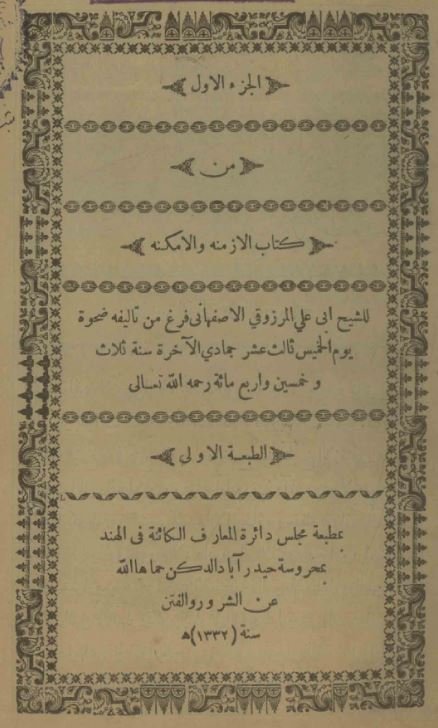 الجزء الاول
من
كتاب الازمنه والامكنه
للشيخ ابى علي المرزوقي الاصفهانى فرغ من تاليفه ضحوة
يوم الخميس ثالث عشر جمادي الآخرة سنة ثلاث
و خمسين واربع مائة رحمه الله تعالى
الطبعة الاولى
بمطبعة مجلس دائرة المعارف الكائنة فى الهند
بمحروسة حيدرآباد الدكن حماها الله
عن الشرور والفتن
سنة (١٣٣٢) ه